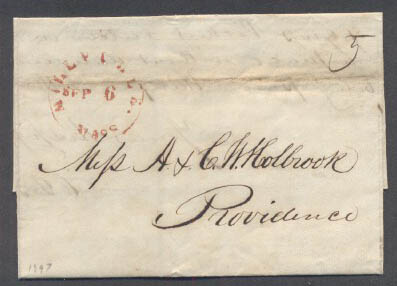 5
SEP 6
Mass
Mess A & C. W. Holbrook
Providence
1847